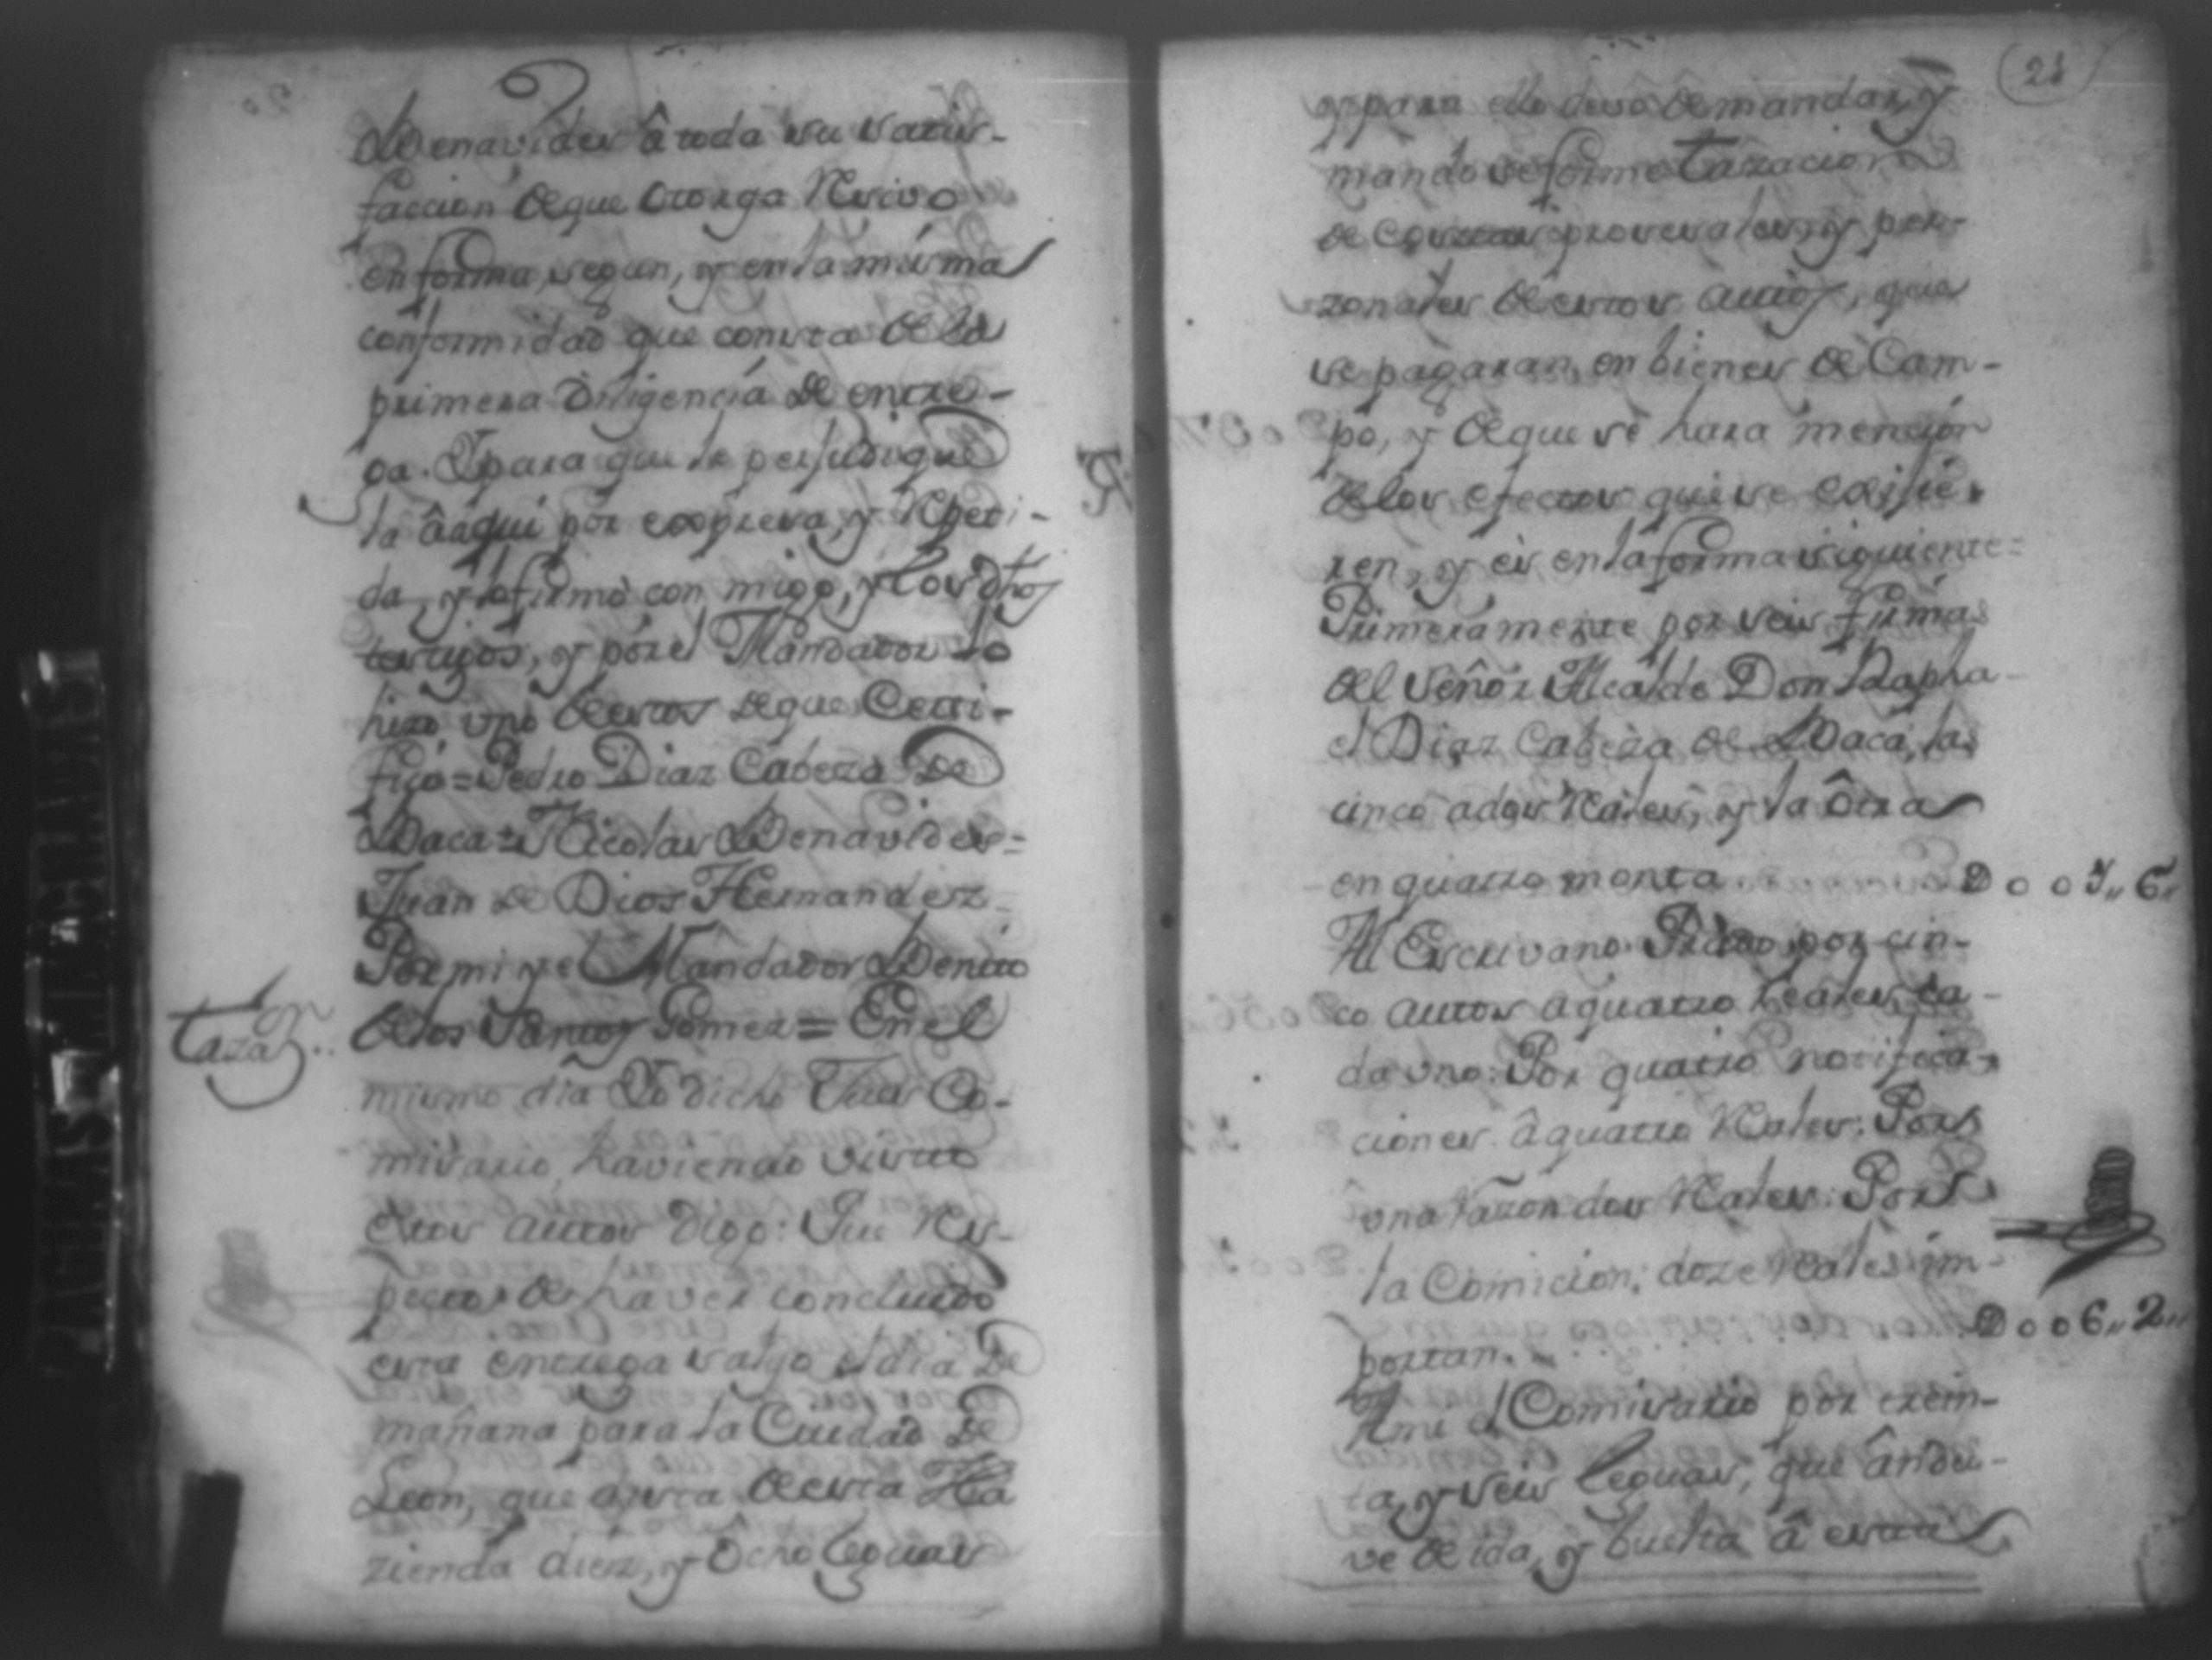 Benavides â toda su satis-
faccion de que otorga Resivo
en forma, segun, y en la misma
conformidad que consta de la
primera diligencia de entre-
ga. Y para que le perjudique
la â aqui por expresa, y Repeti-
da, y lo firmò con migo, y los dhos
testigos, y por el Mandador lo
hizo uno de estos de que Certi-
fico = Pedro Diaz Cabeza de
Baca = Nicolas Benavides =
Juan de Dios Hernandez
Por mi y el Mandador Benito
de los Santos Gomez = En el
Tazaon..
mismo dia Yo dicho Juez Co-
misario, haviendo visto
estos autos digo: Que Res-
pecto de haver concluido
esta entrega salgo el dia de
mañana para la Ciudad de
Leon, que dista de esta Ha
zienda diez, y ôcho leguas
21
y para ello devo de mandar, y
mando se forme tazacion
de costas prosesales, y per-
zonales de estos autos, que
se pagaran en bienes de Cam-
po, y de que se hara mencion
de los efectos que se exijie-
ren, y es en la forma siguiente =
Primeramente por seis firmas
del Señor Alcalde Don Rapha-
el Diaz Cabeza de Baca, las
cinco a dos Reales, y la ôtra
en quatro monta. D 0 0 1,, 6,,
Al Escrivano por cin-
co autos a quatro Reales ca-
da uno: Por quatro notifica-
ciones â quatro Reales: Por
una razon dos Reales: Por
la Comicion, doze Reales im-
portan. D 0 0 6,, 2,,
A mi el Comisario por trein-
ta, y seis leguas, que ându-
ve de ida, y buelta â esta